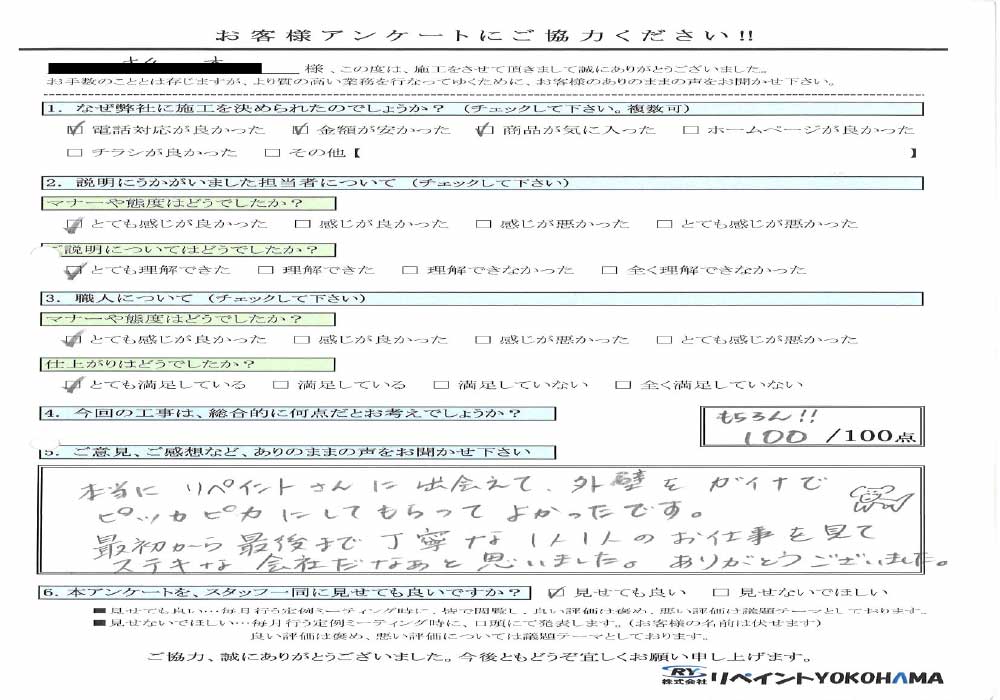 お客様アンケートにご協力ください!!
様、この度は、施工をさせて頂きまして誠にありがとうございました。
お手数のこととは存じますが、より質の高い業務を行なってゆくために、お客様のありのままの声をお聞かせ下さい。
1. なぜ弊社に施工を決められたのでしょうか? (チェックして下さい。複数可)
☑ 電話対応が良かった ☑ 金額が安かった ☑ 商品が気に入った □ ホームページが良かった
□ チラシが良かった □ その他【 】
2. 説明にうかがいました担当者について (チェックして下さい)
マナーや態度はどうでしたか?
☑ とても感じが良かった □ 感じが良かった □ 感じが悪かった □ とても感じが悪かった
ご説明についてはどうでしたか?
☑ とても理解できた □ 理解できた □ 理解できなかった □ 全く理解できなかった
3. 職人について (チェックして下さい)
マナーや態度はどうでしたか?
☑ とても感じが良かった □ 感じが良かった □ 感じが悪かった □ とても感じが悪かった
仕上がりはどうでしたか?
☑ とても満足している □ 満足している □ 満足していない □ 全く満足していない
4. 今回の工事は、総合的に何点だとお考えでしょうか?
もちろん!!
100 /100点
5. ご意見、ご感想など、ありのままの声をお聞かせ下さい
本当に リペイントさんに出会えて、外壁を ガイナで
ピッカピカにしてもらって よかったです。
最初から最後まで丁寧な1人1人のお仕事を見て
ステキな会社だなあと思いました。 ありがとうございました。
6. 本アンケートを、スタッフ一同に見せても良いですか? ☑ 見せても良い □ 見せないでほしい
■見せても良い…毎月行う定例ミーティング時に、皆で閲覧し、良い評価は褒め、悪い評価は議題テーマとしております。
■見せないでほしい…毎月行う定例ミーティング時に、口頭にて発表します。(お客様の名前は伏せます)
良い評価は褒め、悪い評価については議題テーマとしております。
ご協力、誠にありがとうございました。今後ともどうぞ宜しくお願い申し上げます。
RY 株式会社リペイントYOKOHAMA